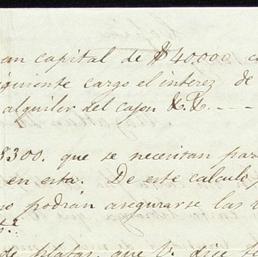 an capital de $40.000 c
iguiente cargo el interez de
alquiler del cajon &c.&.
8300. que se necesitan par
en esta. De este calculo,
no podrán asegurarse las
de platas, que V. dice